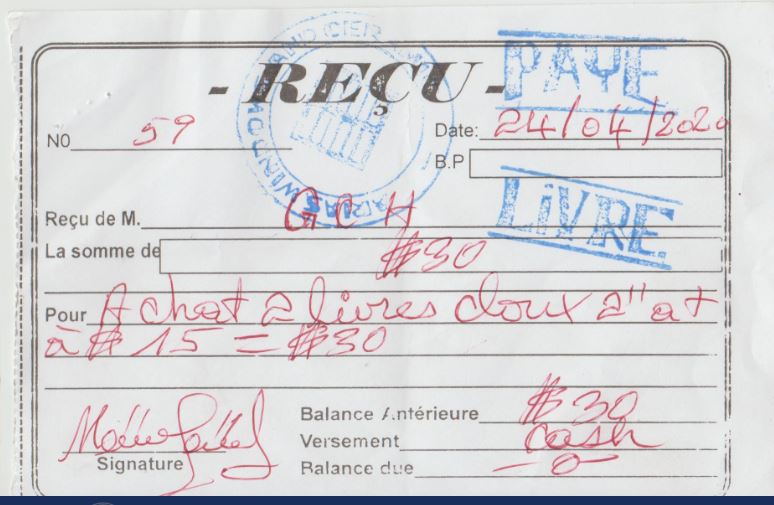 - REÇU -
PAYE
N0 59
Date: 24/04/2020
B.P
WINDOW AND
LIVRE
Reçu de M. G C H
La somme de $30
Pour Achat 2 livres cloux 2" at
à $ 15 = $30
Balance Antérieure $30
Versement cash
Signature
Balance due -0-